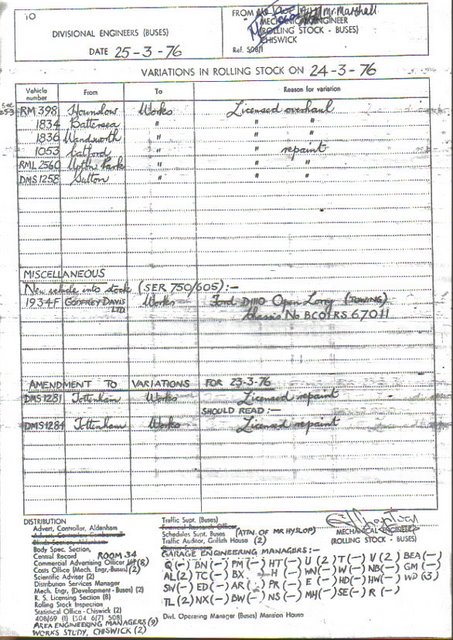 TO
DIVISIONAL ENGINEERS (BUSES)
DATE 25-3-76
FROM Mr Marshall
MECHANICAL ENGINEER
(ROLLING STOCK - BUSES)
CHISWICK
Ref. 508/1
VARIATIONS IN ROLLING STOCK ON 24-3-76
Vehicle number From To Reason for variation
RM 398 Hounslow Works Licensed overhaul
1834 Battersea " " "
1836 Wandsworth " " "
1053 Catford " " repaint
RML 2560 " " "
DMS 1258 Sutton " " "
MISCELLANEOUS
New vehicle into stock (SER 750/605):-
1934F GODFREY DAVIS LTD Works Ford D1110 Open Lorry (TOWING)
Chassis No BCO1RS 67011
AMENDMENT TO VARIATIONS FOR 23-3-76
DMS 1281 Tottenham Works Licensed repaint
SHOULD READ:-
DMS 1284 Tottenham Works Licensed repaint
DISTRIBUTION
Advert. Controller, Aldenham
Body Spec. Section,
Central Record ROOM 34
Commercial Advertising Officer (8)
Costs Office (Mech. Engr. Buses) (2)
Scientific Adviser (2)
Distribution Services Manager
Mech. Engr. (Development - Buses) (2)
R. S. Licensing Section (8)
Rolling Stock Inspection
Statistical Office - Chiswick (2)
408/69 (1) (504 6/71 508)
AREA ENGINEERING MANAGERS (9)
WORKS STUDY, CHISWICK (2)
Traffic Supt. (Buses)
Schedules Supt. Buses (ATTN. OF MR HYSLOP)
Traffic Auditor, Griffith House (2)
GARAGE ENGINEERING MANAGERS:-
Q(-) BN(-) PM(-) HT(-) U(2) T(-) V(2) BEA(-)
AL(2) TC(-) BX(-) H(-) WN(-) W(-) NB(-) GM(-)
SW(-) ED(-) AR(2) PR(-) E(-) HD(-) HW(-) WD(63)
TL(2) NX(-) BW(-) NS(-) MH(-) SE(-) R(-)
Divl. Operating Manager (Buses) Mansion House
MECHANICAL ENGINEER
(ROLLING STOCK - BUSES)